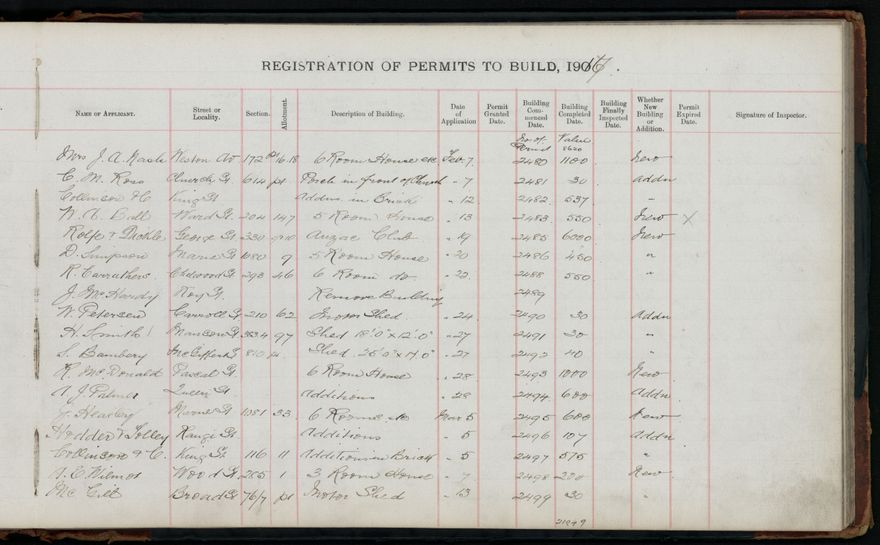 REGISTRATION OF PERMITS TO BUILD, 1917.
Name of Applicant. Street or Locality. Section. Allotment. Description of Building. Date of Application Permit Granted Date. Building Commenced Date. Building Completed Date. Building Finally Inspected Date. Whether New Building or Addition. Permit Expired Date. Signature of Inspector.
No of Permit Value
8620
Mrs J. A. Nash Weston Av 172 16.18 6 Room House Feb 7 2480 1100 New
C. M. Ross Church St 614 pt Porch in front of Church " 7 2481 30 Addn
Collinson & C King St Addns in Brick " 12 2482 537 "
W. A. Ball Ward St 204 147 5 Room House " 13 2483 550 New X
Rolfe & George St 330 Anzac Club " 19 2485 6000 New
D. Simpson Marne St 1080 9 5 Room House " 20 2486 450 "
R. Carruthers 293 46 6 Room do " 22 2488 550 "
J. McHardy Roy St Remove Building 2489
W. Petersen Carroll St 210 62 Motor Shed " 24 2490 30 Addn
H. Smith 97 Shed 18'0" x 12'0" " 27 2491 20 "
S. Bambery 810 Shed 26'0" x 14'0" " 27 2492 40 "
R. McDonald Pascal St 6 Room House " 28 2493 1000 New
A J Palmer Queen St Additions " 28 2494 600 Addn
Healey Marne St 1081 23 6 Rooms do Mar 5 2495 600 New
Hodder & Tolley Rangi St Additions " 5 2496 107 Addn
Collinson & C. King St 116 11 Additions in Brick " 5 2497 515 "
Wilmot Wood St 265 1 3 Room House " 7 2498 200 New
Broad St 76/7 pt Motor Shed " 13 2499 30 "